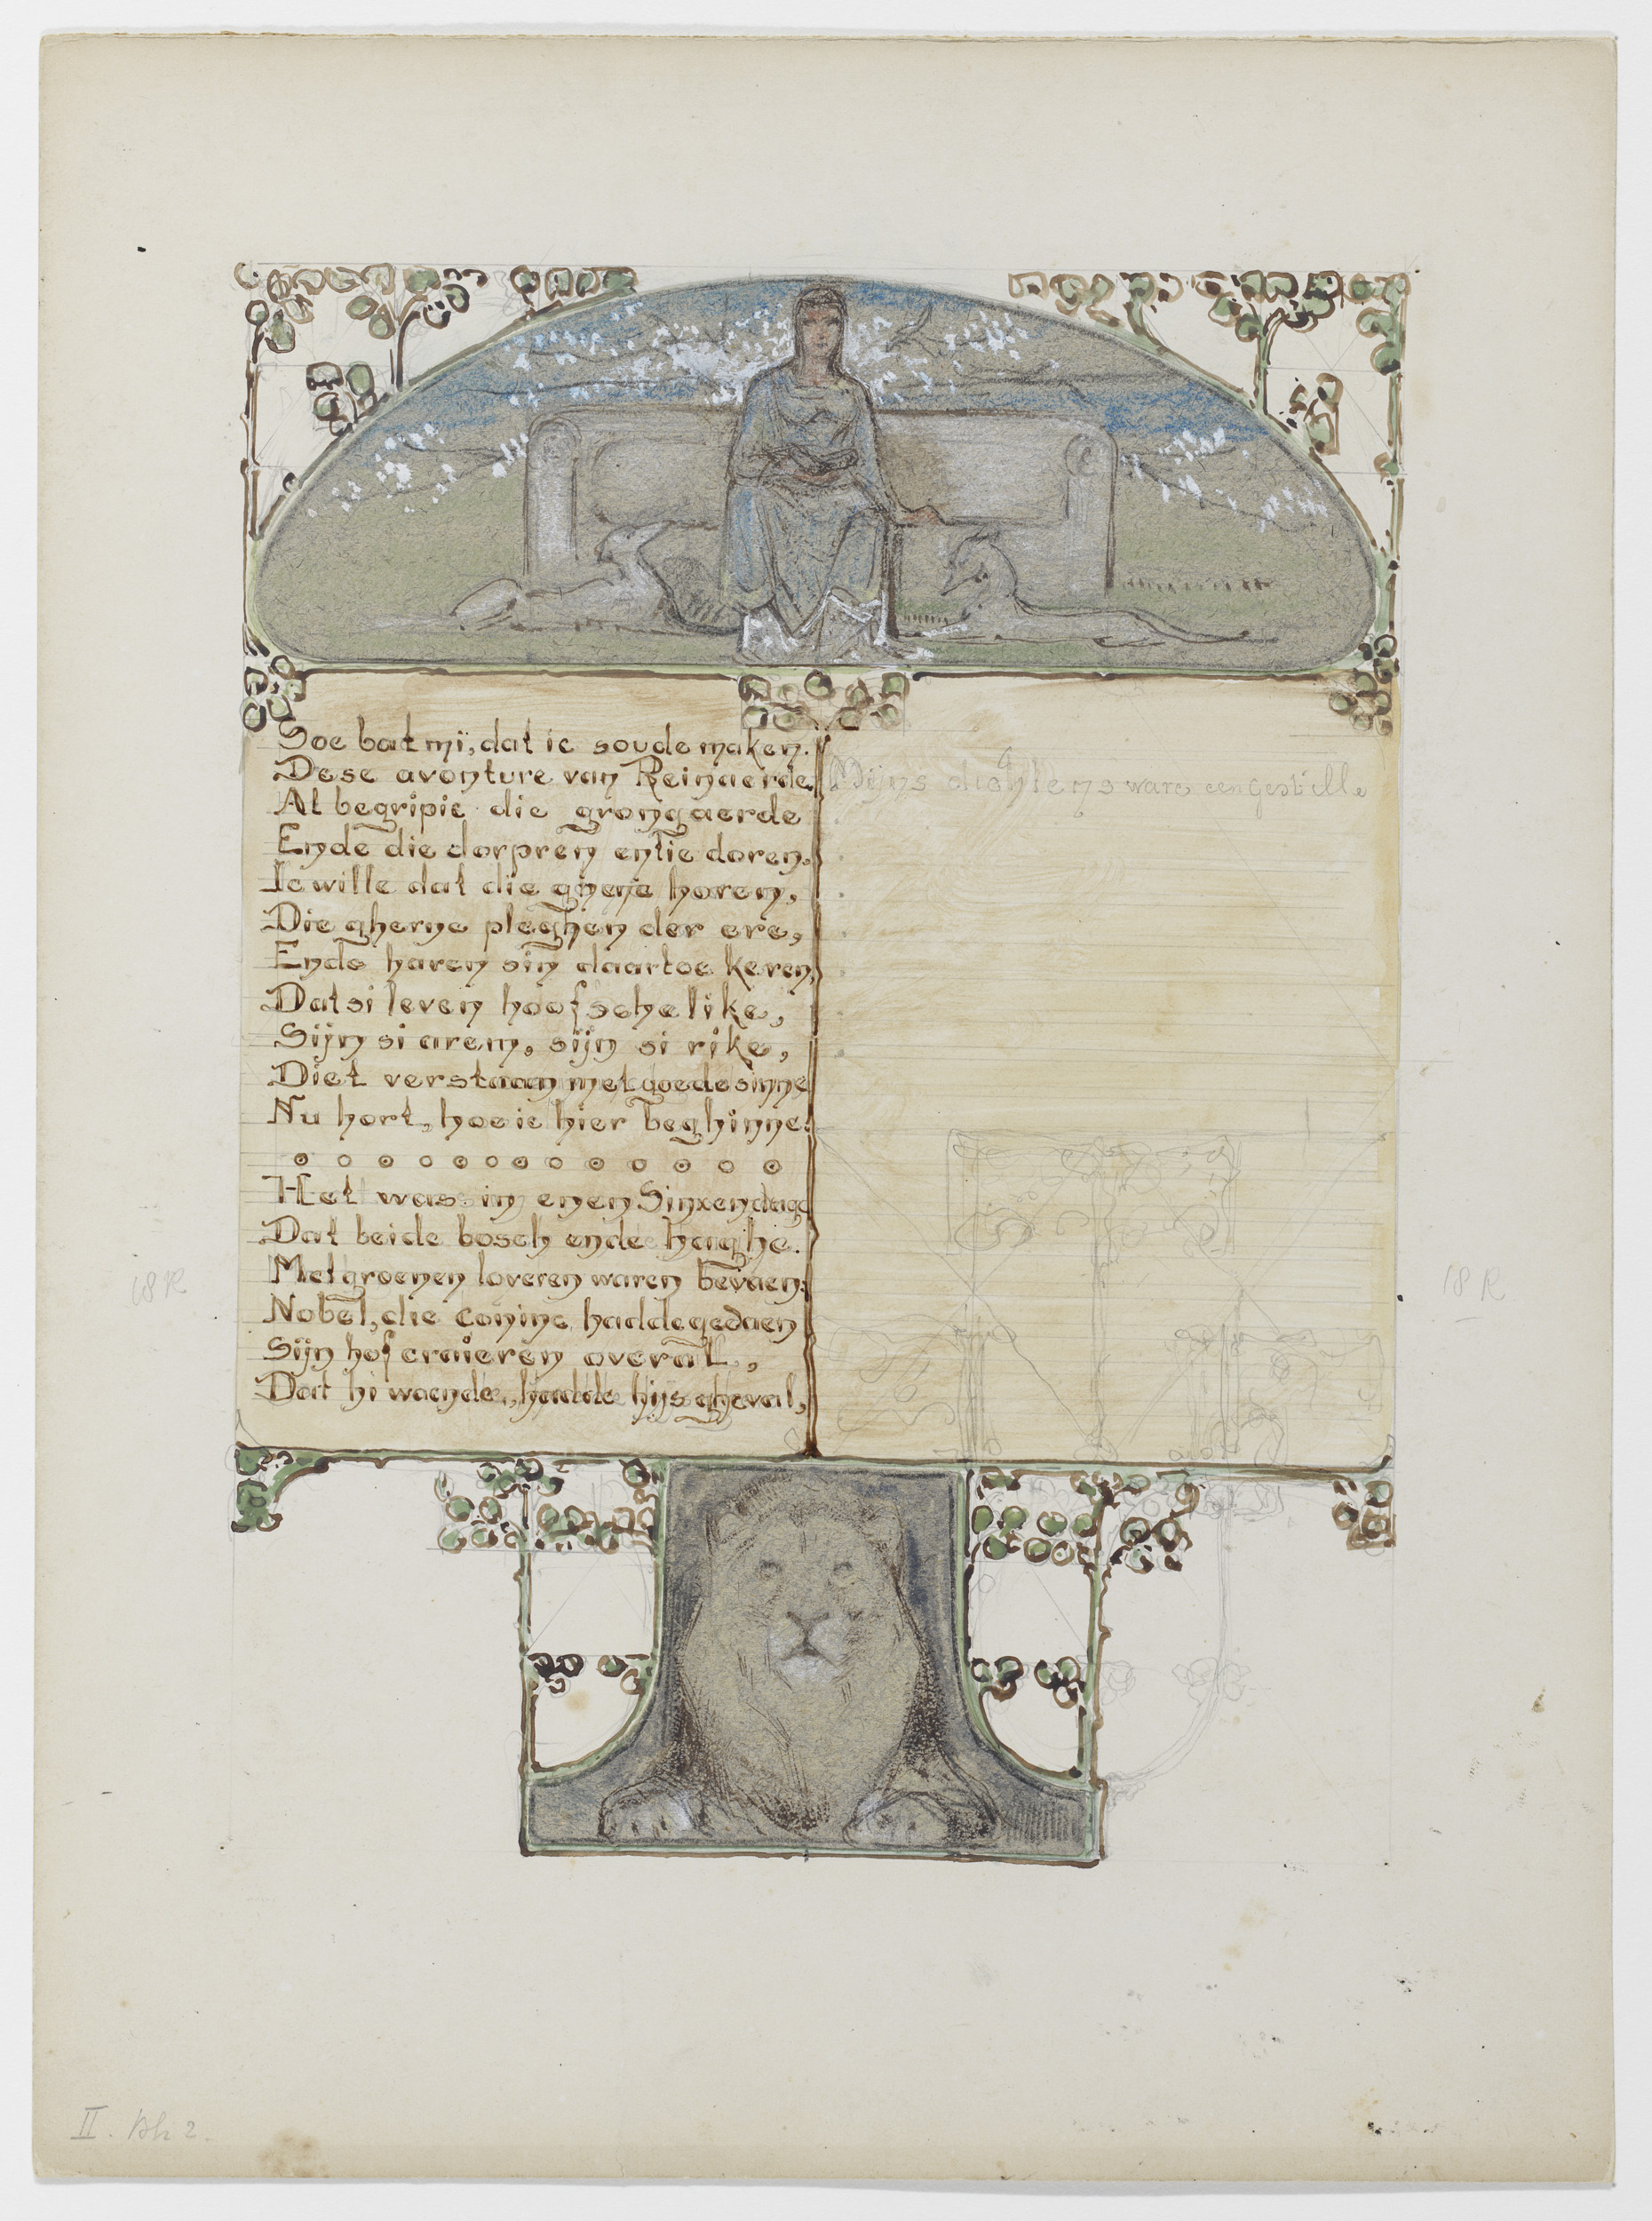 Soe bat mi, dat ic soude maken.
Dese avonture van Reinaerde.
Al begripic die grongaerde
Ende die dorpren entie doren.
Ic wille dat die ghene horen,
Die gherne pleghen der ere,
Ende haren sin daartoe keren,
Dat si leven hoofschelike,
Sijn si arem, sijn si rike,
Diet verstaan met goede sinne
Nu hort, hoe ic hier beghinne:
Het was in enen Sinxendage
Dat beide bosch ende haghe.
Met groenen loveren waren bevaen:
Nobel, die Coninc hadde gedaen
Sijn hof craieren overal,
Dat hi waende, hadde hijs gheval,
Mijns dichtens ware een gestille
18 R
18 R
II. 2.